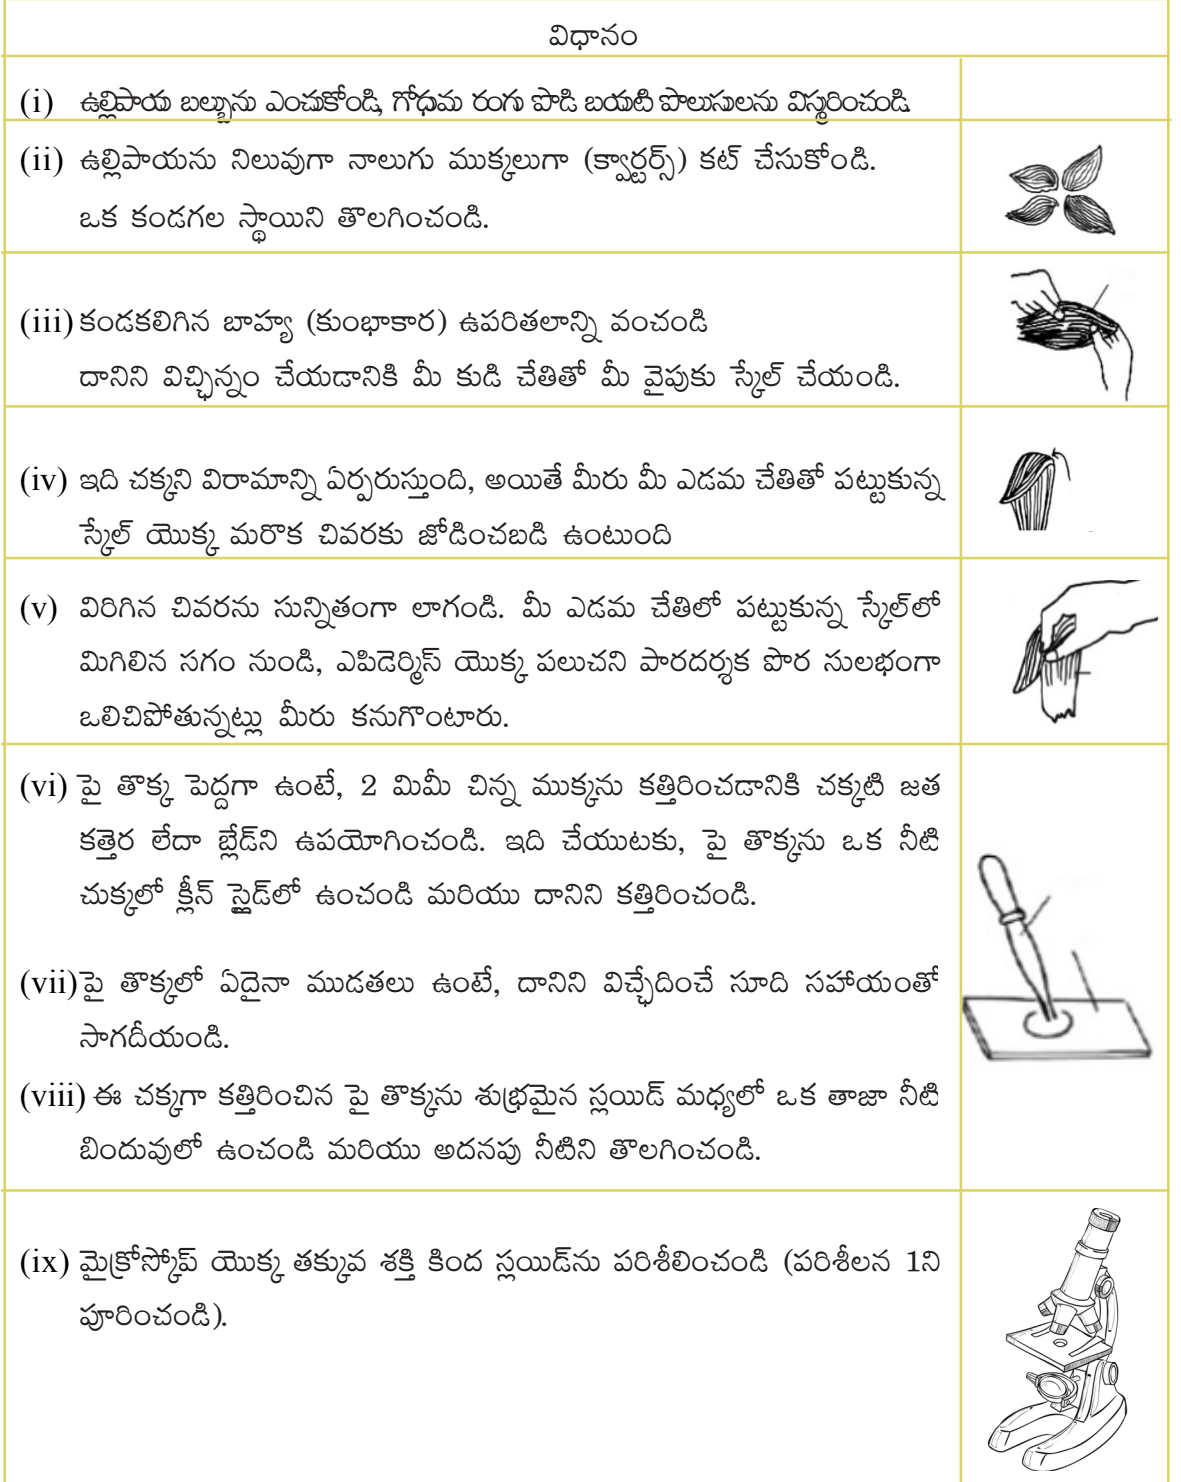 విధానం
(i) ఉల్లిపాయ బల్బును ఎంచుకోండి, గోధుమ రంగు పొడి బయటి పొలుసులను విస్మరించండి
(ii) ఉల్లిపాయను నిలువుగా నాలుగు ముక్కలుగా (క్వార్టర్స్) కట్ చేసుకోండి.
ఒక కండగల స్థాయిని తొలగించండి.
(iii) కండకలిగిన బాహ్య (కుంభాకార) ఉపరితలాన్ని వంచండి
దానిని విచ్ఛిన్నం చేయడానికి మీ కుడి చేతితో మీ వైపుకు స్కేల్ చేయండి.
(iv) ఇది చక్కని విరామాన్ని ఏర్పరుస్తుంది, అయితే మీరు మీ ఎడమ చేతితో పట్టుకున్న
స్కేల్ యొక్క మరొక చివరకు జోడించబడి ఉంటుంది
(v) విరిగిన చివరను సున్నితంగా లాగండి. మీ ఎడమ చేతిలో పట్టుకున్న స్కేల్‌లో
మిగిలిన సగం నుండి, ఎపిడెర్మిస్ యొక్క పలుచని పారదర్శక పొర సులభంగా
ఒలిచిపోతున్నట్లు మీరు కనుగొంటారు.
(vi) పై తొక్క పెద్దగా ఉంటే, 2 మిమీ చిన్న ముక్కను కత్తిరించడానికి చక్కటి జత
కత్తెర లేదా బ్లేడ్‌ని ఉపయోగించండి. ఇది చేయుటకు, పై తొక్కను ఒక నీటి
చుక్కలో క్లీన్ స్లైడ్‌లో ఉంచండి మరియు దానిని కత్తిరించండి.
(vii) పై తొక్కలో ఏదైనా ముడతలు ఉంటే, దానిని విచ్ఛేదించే సూది సహాయంతో
సాగదీయండి.
(viii) ఈ చక్కగా కత్తిరించిన పై తొక్కను శుభ్రమైన స్లయిడ్ మధ్యలో ఒక తాజా నీటి
బిందువులో ఉంచండి మరియు అదనపు నీటిని తొలగించండి.
(ix) మైక్రోస్కోప్ యొక్క తక్కువ శక్తి కింద స్లయిడ్‌ను పరిశీలించండి (పరిశీలన 1ని
పూరించండి).